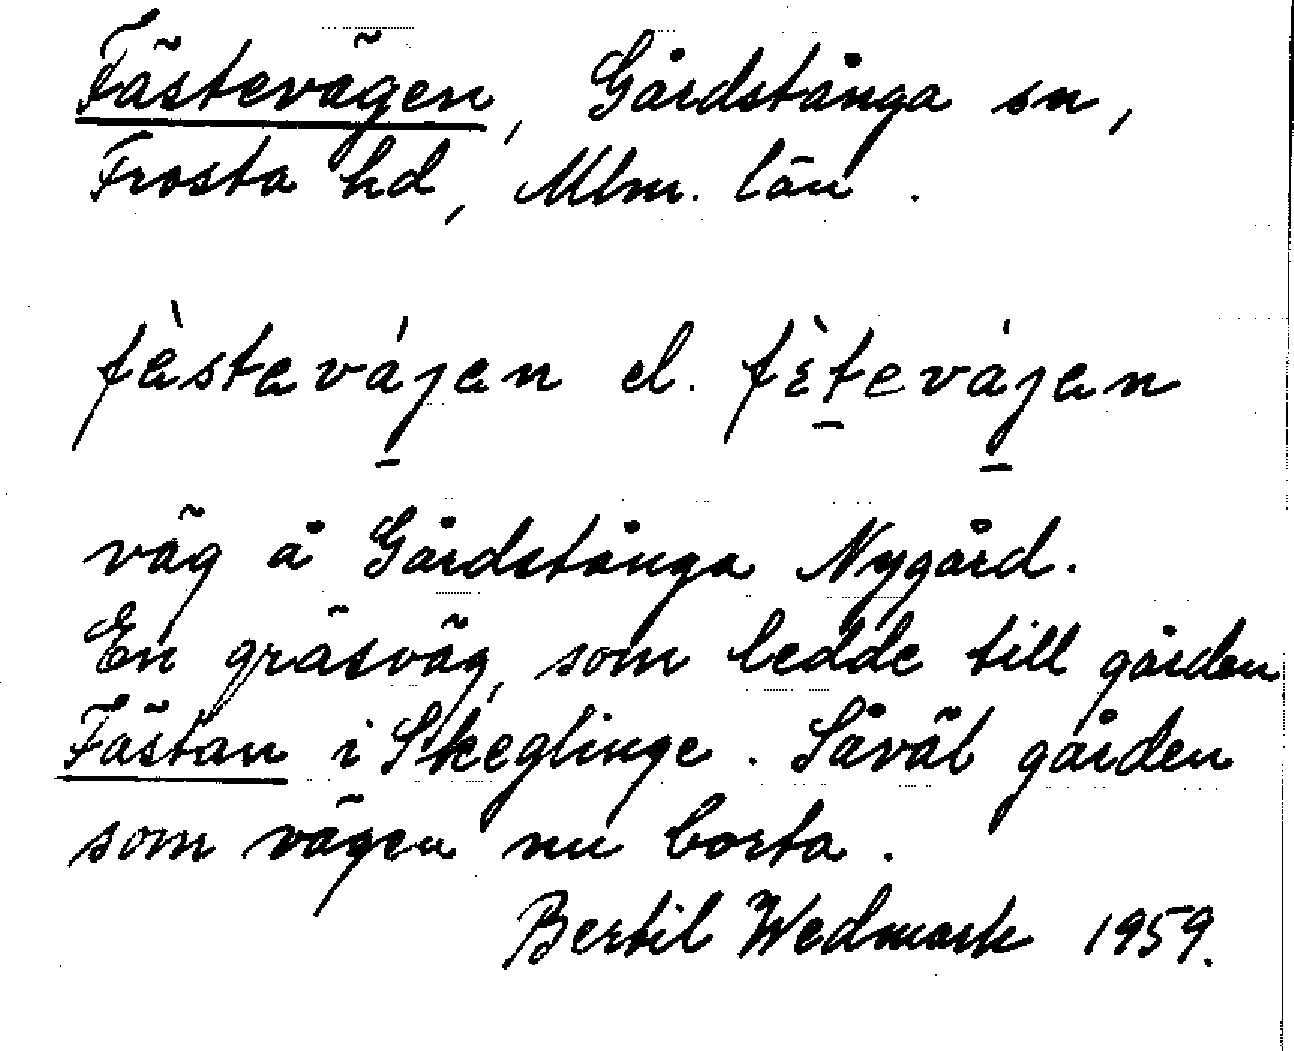 Fästevägen, Gårdstånga sn,
Frosta hd, Mlm. län.
fὲstevájen el. fὲtevájen
väg å Gårdstånga Nygård.
En gräsväg, som ledde till gården
Fästan i Skeglinge. Såväl gården
som vägen nu borta.
Bertil Wedmark 1959.